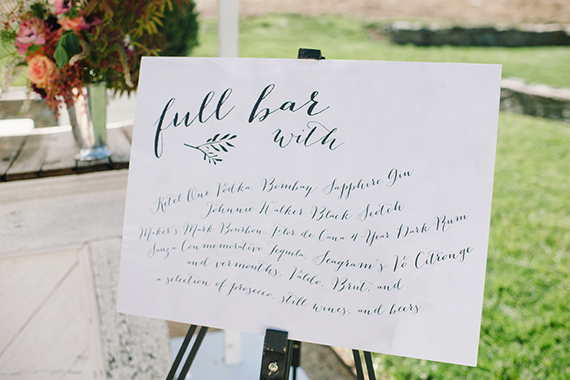 full bar
with
Ketel One Vodka, Bombay Sapphire Gin
Johnnie Walker Black Scotch
Maker's Mark Bourbon, Flor de Cana 4-Year Dark Rum
Sauza Conmemorativo Tequila, Seagram's Vo Citronge
and vermouths, Valdo, Brut, and
a selection of prosecco, still wines, and beers